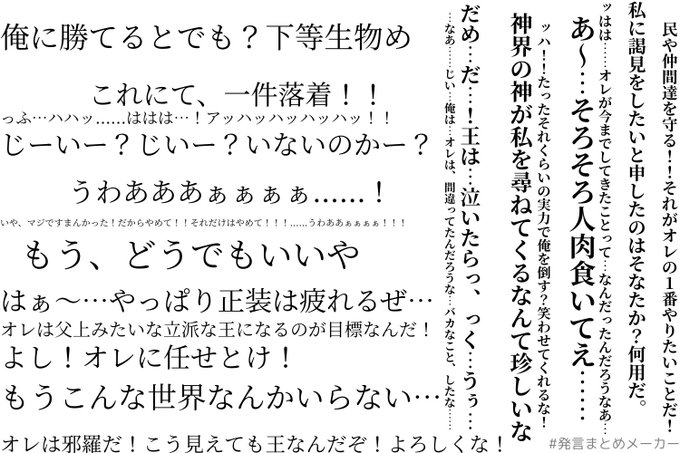 俺に勝てるとでも？下等生物め
これにて、一件落着！！
っふ…ハハッ……ははは…！アッハッハッハッハッ！！
じーいー？じいー？いないのかー？
うわあああぁぁぁぁ……！
いや、マジですまんかった！だからやめて！！それだけはやめて！！！……うわああぁぁぁぁ！！！
もう、どうでもいいや
はぁ～…やっぱり正装は疲れるぜ…
オレは父上みたいな立派な王になるのが目標なんだ！
よし！オレに任せとけ！
もうこんな世界なんかいらない…
オレは邪羅だ！こう見えても王なんだぞ！よろしくな！
民や仲間達を守る！！それがオレの１番やりたいことだ！
私に謁見をしたいと申したのはそなたか？何用だ。
ッはは……オレが今までしてきたことって…なんだったんだろうなあ…
あ～…そろそろ人肉食いてえ……
ッハ！！たったそれくらいの実力で俺を倒す？笑わせてくれるな！
神界の神が私を尋ねてくるなんて珍しいな
だめ…だ…！王は…泣いたらっ、っく…うぅ…
…なあ……じい…俺は…オレは、間違ってたんだろうな…バカなこと、したな……
#発言まとめメーカー